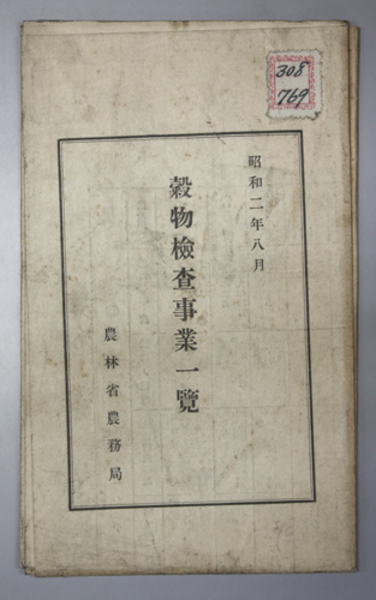 308
769
昭和二年八月
穀物檢査事業一覽
農林省農務局